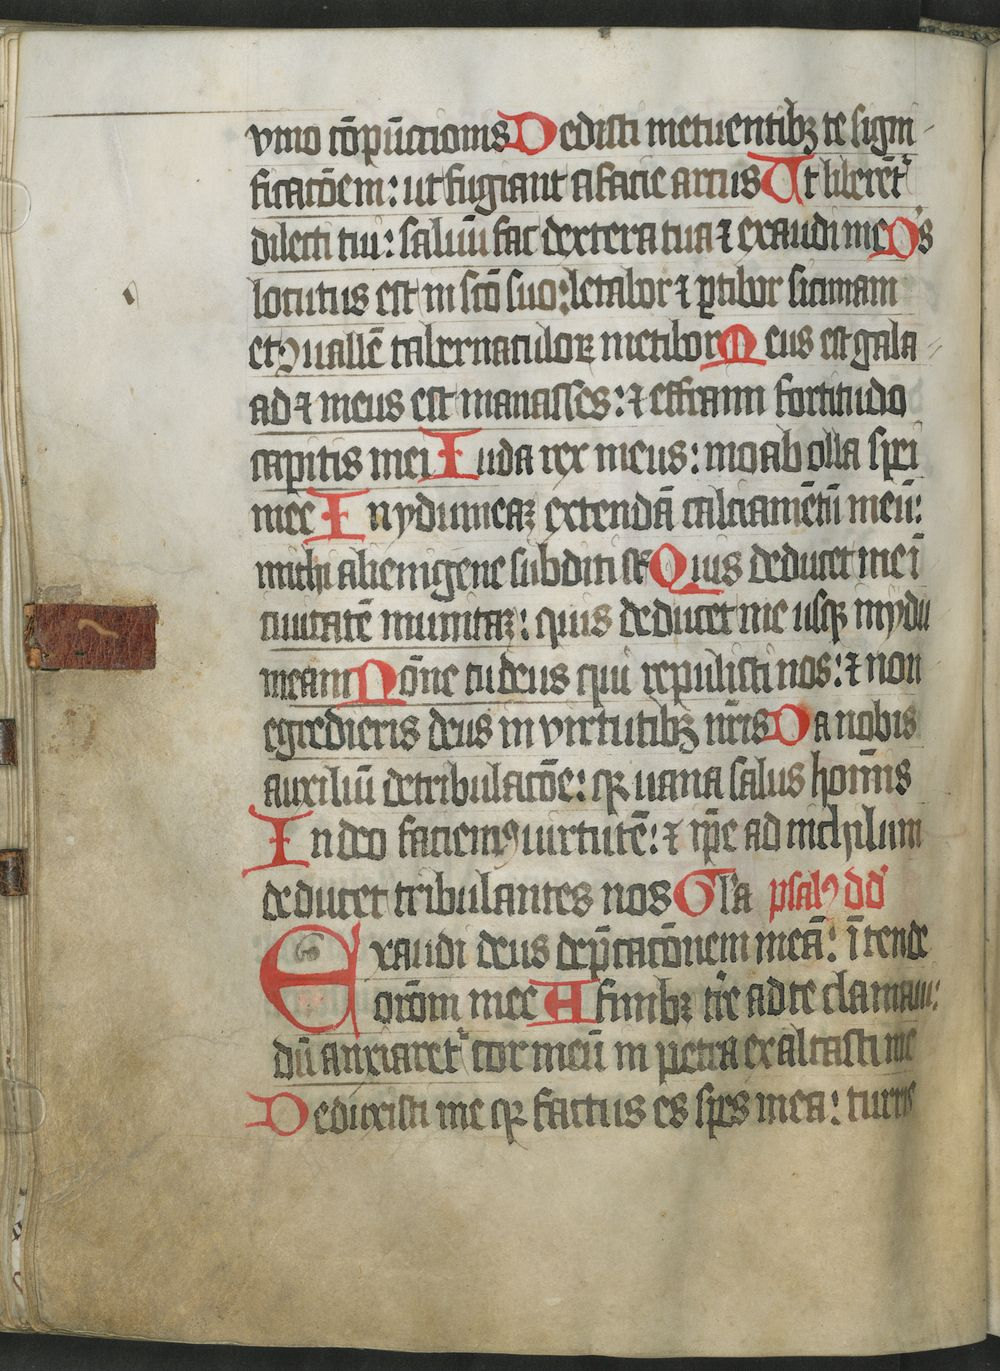 vino cōpūctionis Dedisti metuentibꝫ te signi-
ficatōem: ut fugiant a facie arcus Ut liberēt᷑
dilecti tui: saluū fac dextera tua ⁊ exaudi me Dˢ
locutus est in scō suo: letabor ⁊ ꝑtibor sicimam
et ꝯuallē tabernaculoꝝ metibor Meus est gala-
ad ⁊ meus est manasses: ⁊ effraim fortitudo
capitis mei Iuda rex meus: moab olla spei
mee In ydumeaꝫ extendā calciamētū meū:
michi alienigene subditi st̄ Quis deducet me ī
ciuitatē munitaꝫ: quis deducet me usqꝫ in ydu
meam Nōne tu deus qui repulisti nos: ⁊ non
egredieris deus in virtutibꝫ nr̄is Da nobis
auxiliū de tribulacōe: qꝛ uana salus hoīnis
In deo faciemꝯ uirtutē: ⁊ ip̄e ad nichilum
deducet tribulantes nos Gl'a psalꝯ dd
Exaudi deus dep̄cacōnem meā: ītende
orōni mee A finibꝫ tr̄e ad te clamaui:
dū anxiaret᷑ cor meū in petra exaltasti me
Deduxisti me qꝛ factus es spes mea: turris